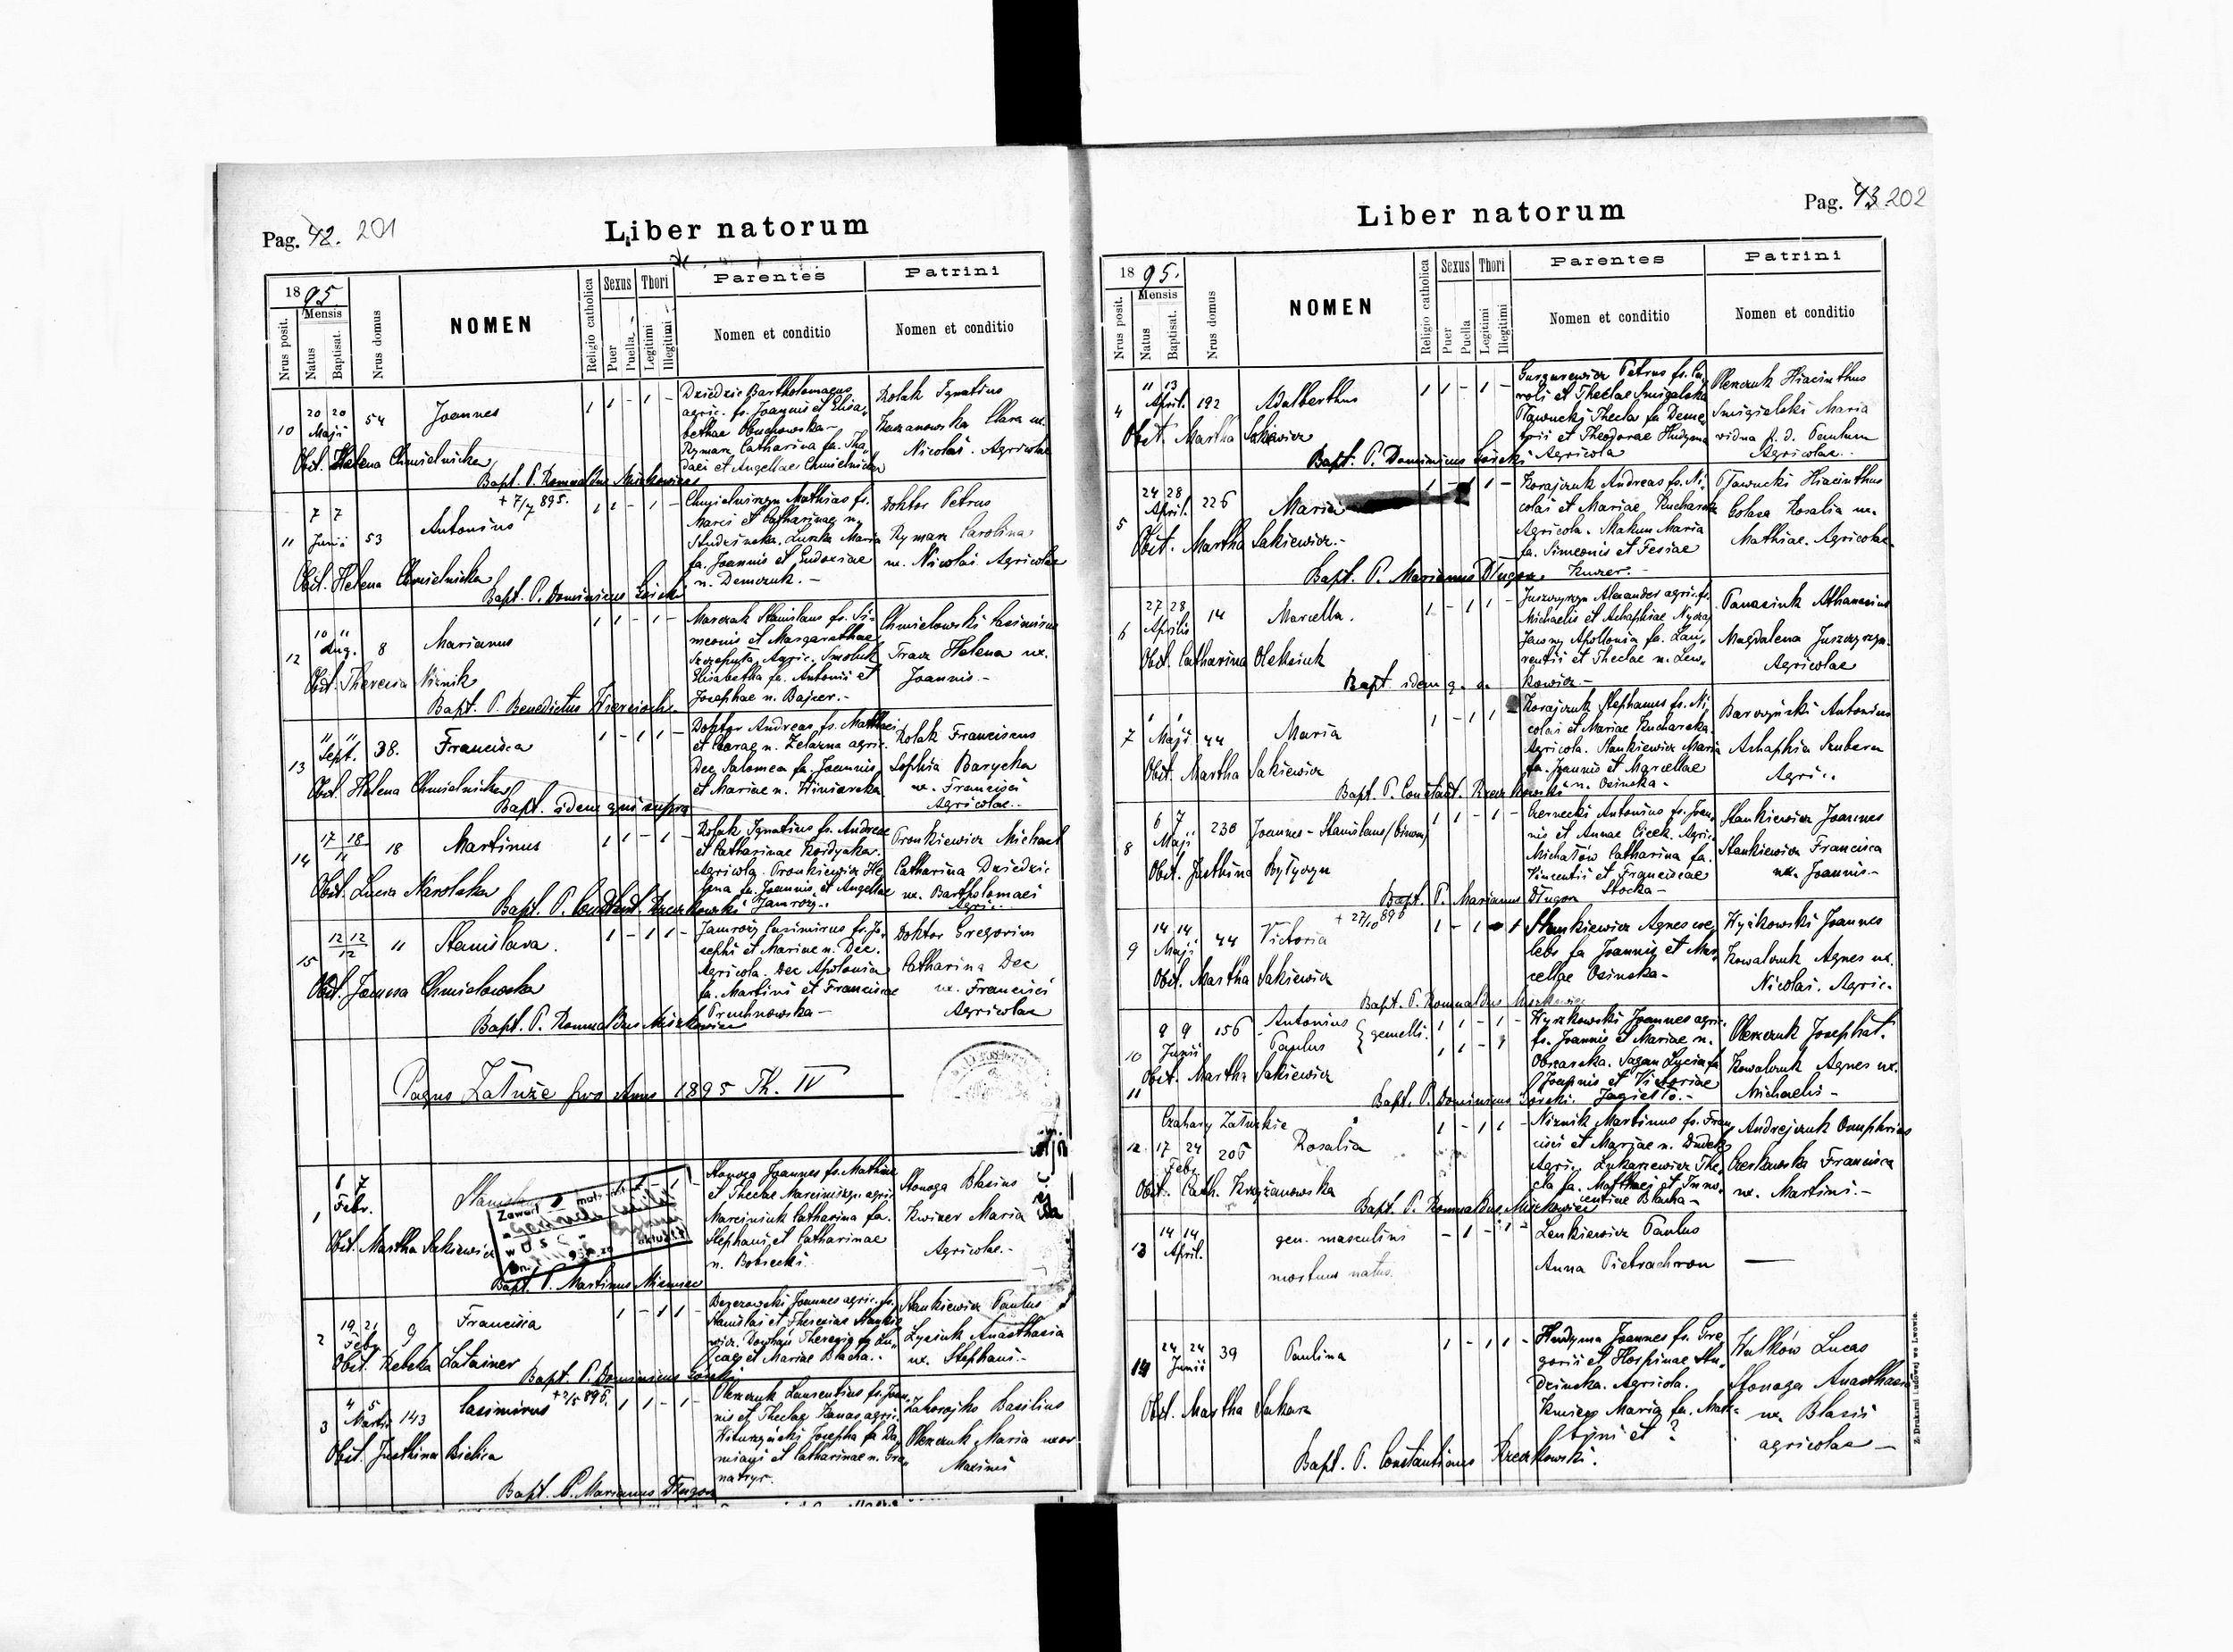 Pag. 42. 201
Liber natorum
1895
Nrus posit.
Mensis
Natus
Baptisat.
Nrus domus
NOMEN
Religio catholica
Sexus
Puer
Puella
Thori
Legitimi
Illegitimi
Parentes
Nomen et conditio
Patrini
Nomen et conditio
10 20 20 Maji 54 Joannes 1 1 - 1 -
Dziedzic Bartholomaeus
agric. fs. Joannis et Elisa„
bethae
Rymarz Catharina fa. Tha„
daei et Angellae Chmielnicka
Rolak Ignatius
Clara ux.
Nicolai. Agricolae
Obst. Helena Chmielnicka
Bapt. P. Romualdus Miszkowicz
11 7 7 Junii 53 + 7/7 895. Antonius 1 1 - 1 -
Mathias fs.
Marci et Catharinae n.
Maria
fa. Joannis et Eudoxiae
n. Demczuk. -
Doktor Petrus
Rymarz Carolina
ux. Nicolai. Agricolae
Obst. Helena Chmielnicka
Bapt. P. Dominicus Górski
12 10 11 Aug. 8 Marianus 1 1 - 1 -
Marczak Stanislaus fs. Si-
meonis et Margarethae
Agric. Smoluk
Elisabetha fa. Antonii et
Josephae n. Bajcer. -
Chmielowski Casimirus
Tracz Helena ux.
Joannis. -
Obst. Theresia Niznik
Bapt. P. Benedictus
13 11 11 Sept. 38. Francisca 1 - 1 1 -
Doktor Andreas fs. Matthaei
et Clarae n. Zelazna agric.
Dec Salomea fa. Joannis
et Mariae n. Winiarska
Rolak Franciscus
Sophia Barycka
ux. Francisci
Agricolae. -
Obst. Helena Chmielnicka
Bapt. idem qui supra
14 17 18 11 18 Martinus 1 1 - 1 -
Rolak Ignatius fs. Andreae
et Catharinae Kordyaka.
Agricola. Pronkiewicz He„
lena fa. Joannis et Angellae
Jamroży. -
Pronkiewicz Michael
Catharina Dziedzic
ux. Bartholomaei
Agric. -
Obst. Lucia Narolska
Bapt. P. Constant. Krzeczkowski
15 12 12 12 11 Stanislava. 1 - 1 1 -
Jamroży Casimirus fs. Jo„
sephi et Mariae n. Dec.
Agricola. Dec Apolonia
fa. Martini et Franciscae
Doktor Gregorius
Catharina Dec
ux. Francisci
Agricolae
Obst. Chmielowska
Bapt. P. Romualdus Miszkowicz
Pagus Załuże pro Anno 1895 Th. IV
1 6 7 Febr. - 1 -
Stonoga Joannes fs. Mathiae
et Theclae agric.
Marciniuk Catharina fa.
Stephani et Catharinae
n. Bobiecki.
Stonoga Blasius
Kwizer Maria
Agricolae. -
Zawarł
w U S C
Obst. Martha Sakiewicz
Bapt. P. Martinus
2 19 21 Febr. 9 Francisca 1 - 1 1 -
Joannes agric. fs.
Stanislai et Theresiae Stankie„
wicz. Theresia fa Lu„
cae et Mariae Blacha. -
Stankiewicz Paulus
Lysiuk Anasthasia
ux. Stephani. -
Obst. Rebeka Latainer
Bapt. P. Dominicus Górski
3 4 5 Martii 143 Casimirus + 2/5 896. 1 1 - 1 -
Olexczuk Laurentius fs. Joan„
nis et Theclae agric.
Josepha fa Da„
miani et Catharinae n. Gra„
natryr.
Zahorojko Basilius
Olexczuk Maria uxor
Maximi
Obst. Justhina Bielica
Bapt. P. Marianus Długosz
Pag. 43 202
Liber natorum
1895.
Nrus posit.
Mensis
Natus
Baptisat.
Nrus domus
NOMEN
Religio catholica
Sexus
Puer
Puella
Thori
Legitimi
Illegitimi
Parentes
Nomen et conditio
Patrini
Nomen et conditio
4 11 13 April. 192 Adalberthus 1 1 - 1 -
Petrus fs. Ca„
roli et Theclae Smigelska
Thecla fa Deme„
trii et Theodorae Hudyma
Agricola
Olexczuk Hiacinthus
Smigielski Maria
vidua p. d. Paulum
Agricolae. -
Obst. Martha Sakiewicz
Bapt. P. Dominicus Górski
5 24 28 April. 226 Maria 1 - 1 1 -
Korajczuk Andreas fs. Ni„
colai et Mariae Kucharska
Agricola. Makuch Maria
fa. Simeonis et Tesiae
Hiacinthus
Golasa Rosalia ux.
Mathiae. Agricolae
Obst. Martha Sakiewicz. -
Bapt. P. Marianus Długosz
6 27 28 Aprilis 14 Marcella. 1 - 1 1 -
Juszczyszyn Alexander agric. fs.
Michaelis et Achaphiae
Apollonia fa. Lau„
rentii et Theclae n. Lew„
kowicz. -
Panasiuk Athanasius
Magdalena Juszczyszyn
Agricolae
Obst. Catharina Oleksiuk
Bapt. idem q. s.
7 1 1 Maji 44 Maria 1 - 1 1
Korajczuk Stephanus fs. Ni„
colai et Mariae Kucharska.
Agricola. Stankiewicz Maria
fa. Joannis et Marcellae
n. Osinska -
Barczyński Antonius
Achaphia
Agric.
Obst. Martha Sakiewicz
Bapt. P. Constant. Krzeczkowski
8 6 7 Maji 230 Joannes - Stanislaus (binom) 1 1 - 1 -
Czernecki Antonius fs. Joan„
nis et Annae Cicek. Agric.
Michałów Catharina fa.
Vincentii et Franciscae
Stocka -
Stankiewicz Joannes
Stankiewicz Francisca
ux. Joannis. -
Obst. Justhina Bytyczyn
Bapt. P. Marianus Długosz
9 14 14 Maji 44 Victoria + 27/10 896 1 - 1 - 1
Stankiewicz Agnes coe„
lebs fa Joannis et Mar„
cellae Osinska -
Joannes
Kowalczuk Agnes ux.
Nicolai. Agric.
Obst. Martha Sakiewicz
Bapt. P. Romualdus Miszkowicz
10 9 9 Junii 156 Antonius Paulus } gemelli. 1 1 - 1 -
11 1 1 - 1
Wyszkowski Joannes agric.
fs. Joannis et Mariae n.
Obszarska. Sagan Lucia fa
Joannis et Victoriae
Jagiełło. -
Olexczuk Josephat.
Kowalczuk Agnes ux.
Michaelis -
Obst. Martha Sakiewicz
Bapt. P. Dominicus Górski.
Czahary Załuzkie
12 17 24 Feb. 206 Rosalia 1 - 1 1 -
Niznik Martinus fs. Fran„
cisci et Mariae n. Dudek
Agric. Lukasiewicz The„
cla fa. Matthaei et Inno„
centiae Blacha -
Andrejczuk Onuphrius
Czerkawska Francisca
ux. Martini. -
Obst. Cath. Krzyżanowska
Bapt. P. Romualdus Miszkowicz
13 14 14 April. gen. masculini - 1 - 1 -
mortuus natus.
Lenkiewicz Paulus
Anna Pietrachron
14 24 24 Junii 39 Paulina 1 - 1 1 -
Hudyma Joannes fs. Gre„
gorii et Hospinae Stu„
dzinska. Agricola.
Kmieć Maria fa. Mar„
tini et ?
Hulków Lucas
Stonoga Anasthasia
ux. Blasii
agricolae -
Obst. Martha
Bapt. P. Constantinus Krzeczkowski.
Z Drukarni Ludowej we Lwowie.